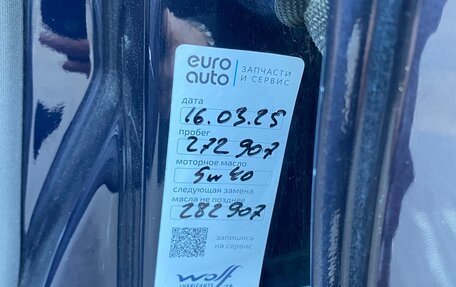 euro
auto
ЗАПЧАСТИ
И СЕРВИС
дата
16.03.25
пробег
272 907
моторное масло
5w40
следующая замена
масла не позднее
282 907
запишись
на сервис
Wolf
LUBRICANTS